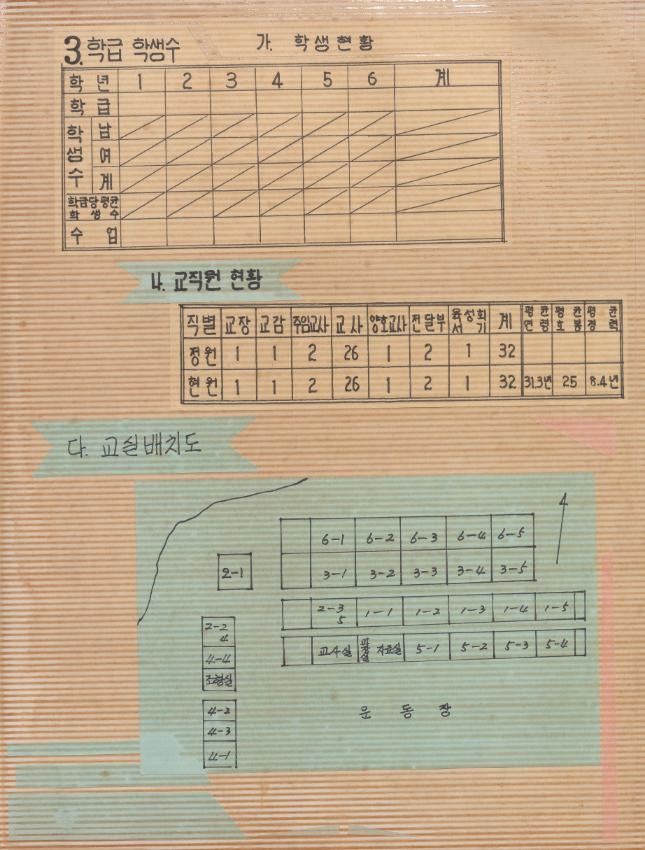 3. 학급 학생수 가. 학생현황
학년 1 2 3 4 5 6 계
학급
학생수 남
여
계
학급당평균
학생수
수업
나. 교직원 현황
직별 교장 교감 주임교사 교사 양호교사 전달부 육성회서기 계 평균연령 평균호봉 평균경력
정원 1 1 2 26 1 2 1 32
현원 1 1 2 26 1 2 1 32 31.3년 25 8.4년
다. 교실배치도
4
6-1 6-2 6-3 6-4 6-5
2-1 3-1 3-2 3-3 3-4 3-5
2-3 5 1-1 1-2 1-3 1-4 1-5
2-2 4
교사실 자료실 5-1 5-2 5-3 5-4
4-4
4-2
운동장
4-3
4-1